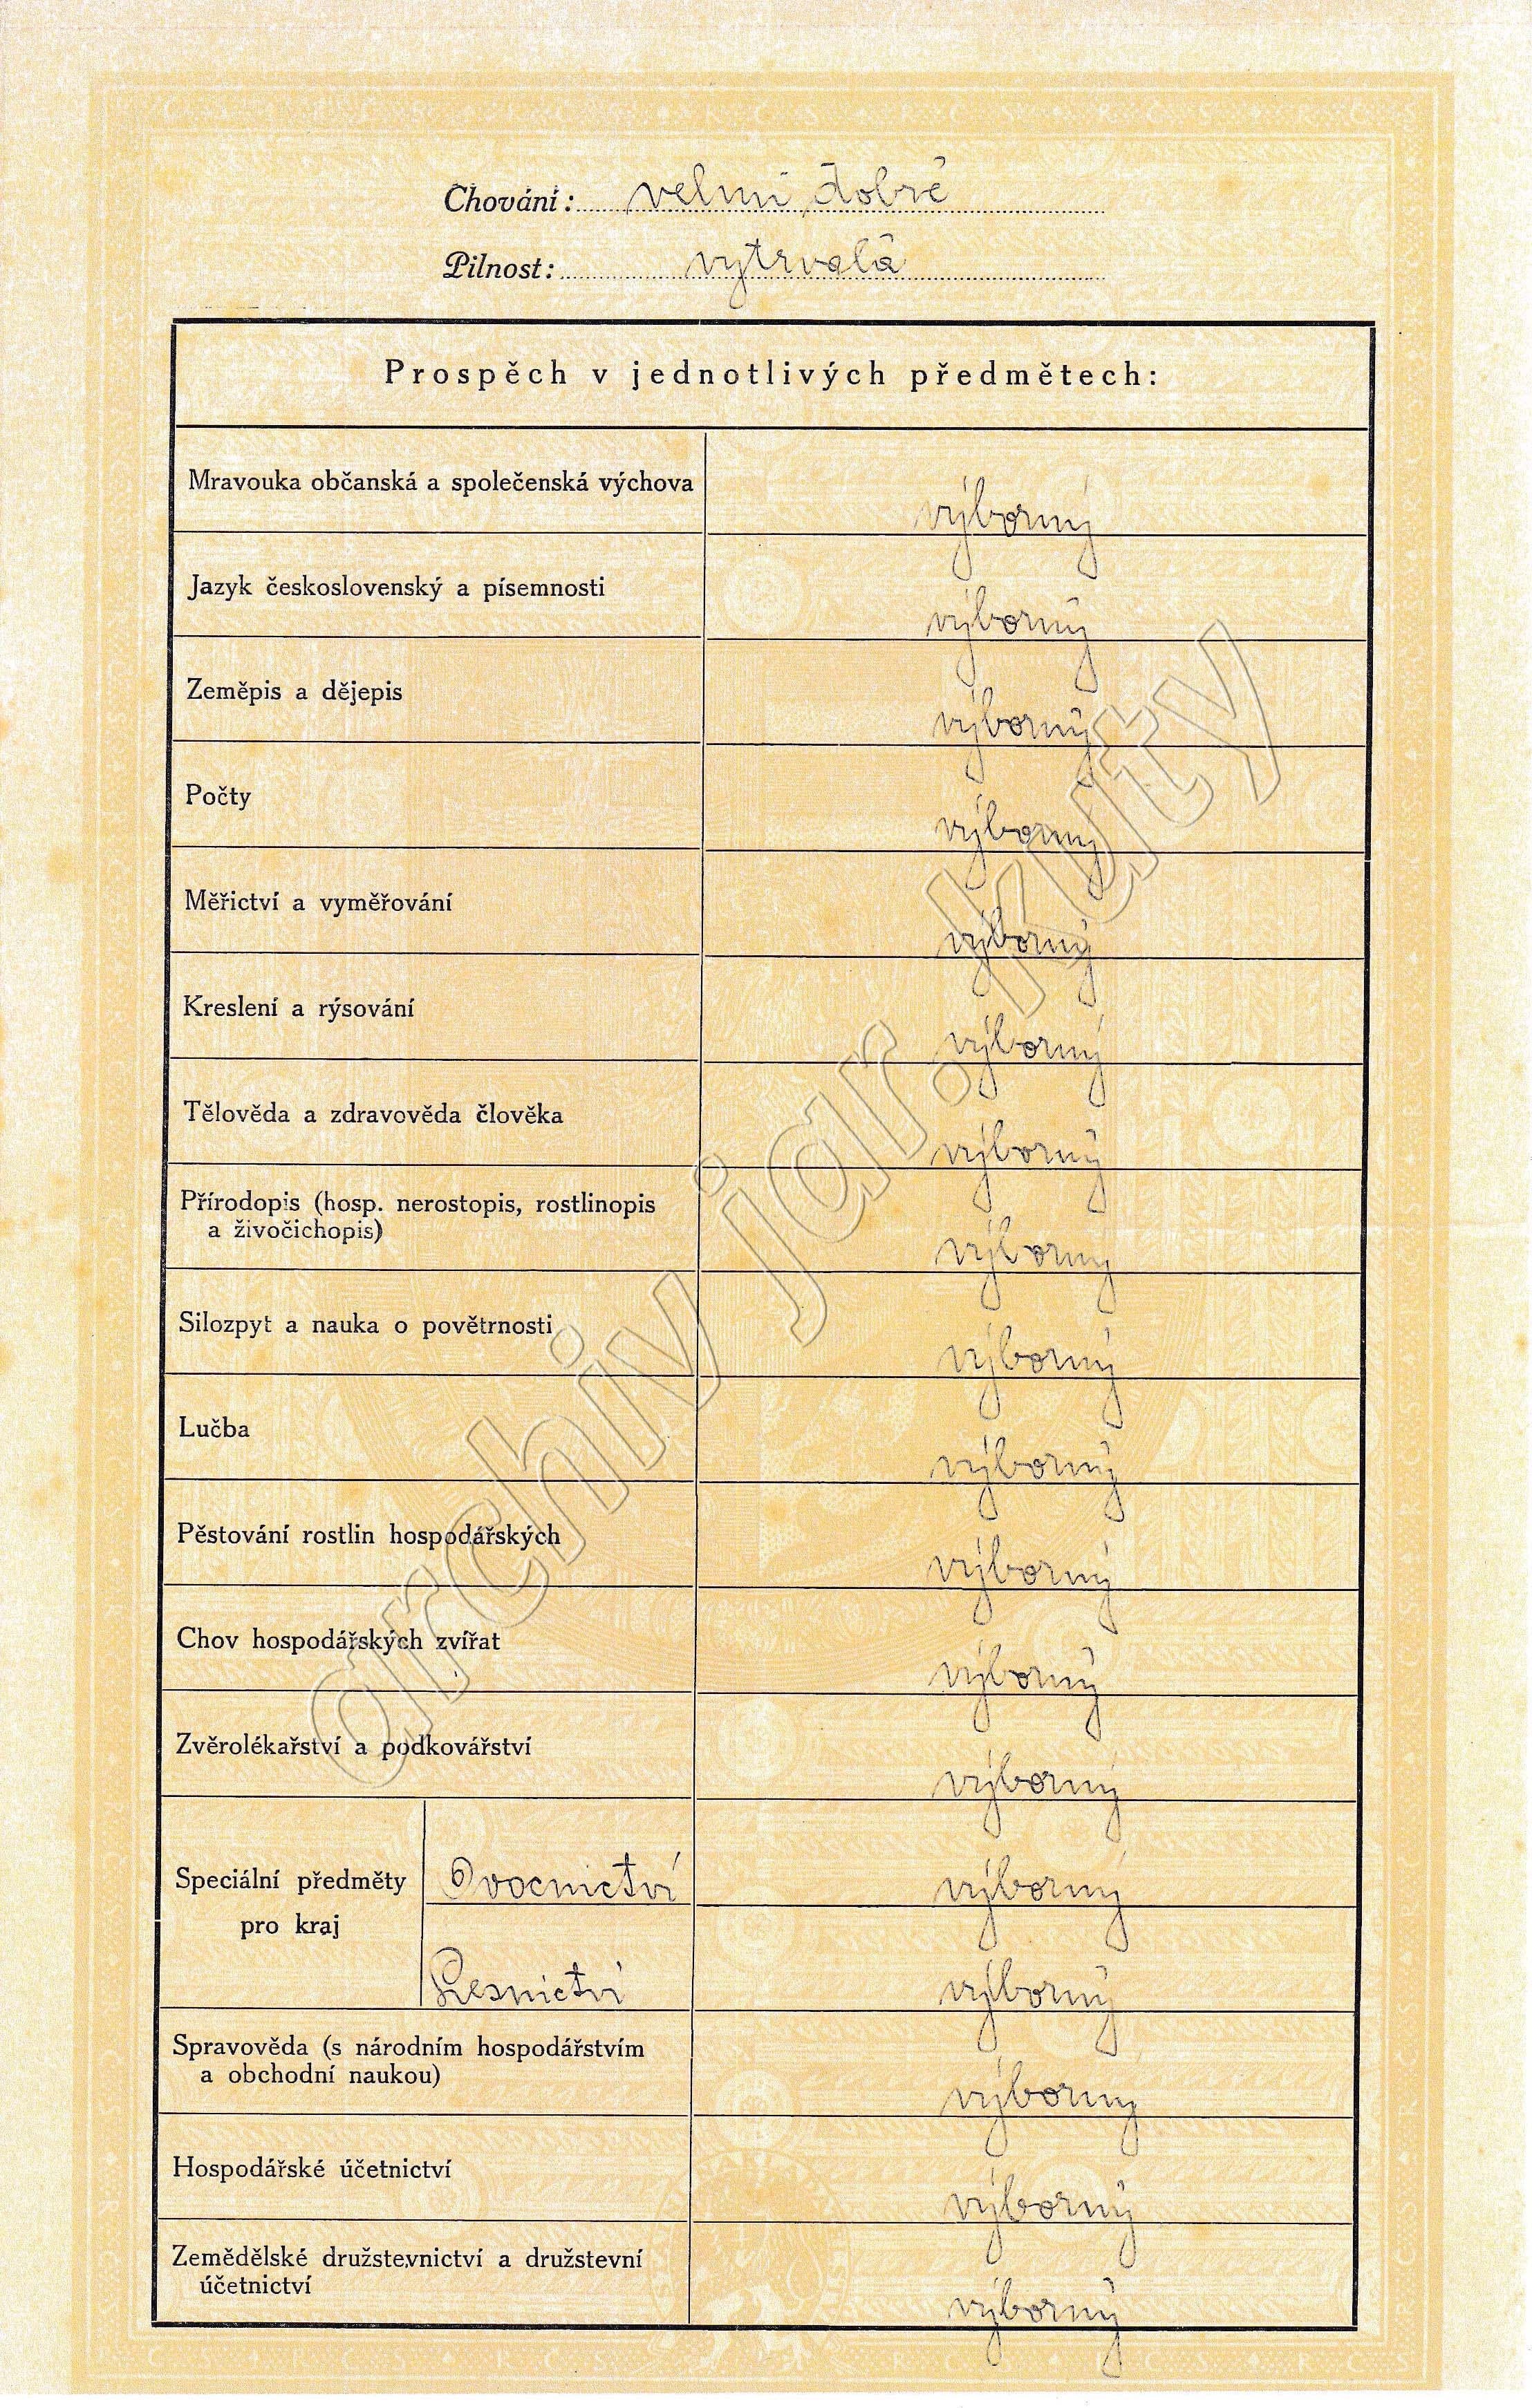 Chování: velmi dobré
Pilnost: vytrvalá
Prospěch v jednotlivých předmětech:
Mravouka občanská a společenská výchova výborný
Jazyk československý a písemnosti výborný
Zeměpis a dějepis výborný
Počty výborný
Měřictví a vyměřování výborný
Kreslení a rýsování výborný
Tělověda a zdravověda člověka výborný
Přírodopis (hosp. nerostopis, rostlinopis
a živočichopis) výborný
Silozpyt a nauka o povětrnosti výborný
Lučba výborný
Pěstování rostlin hospodářských výborný
Chov hospodářských zvířat výborný
Zvěrolékařství a podkovářství výborný
Speciální předměty
pro kraj
Ovocnictví výborný
Lesnictví výborný
Spravověda (s národním hospodářstvím
a obchodní naukou) výborný
Hospodářské účetnictví výborný
Zemědělské družstevnictví a družstevní
účetnictví výborný
archiv jar. kuty